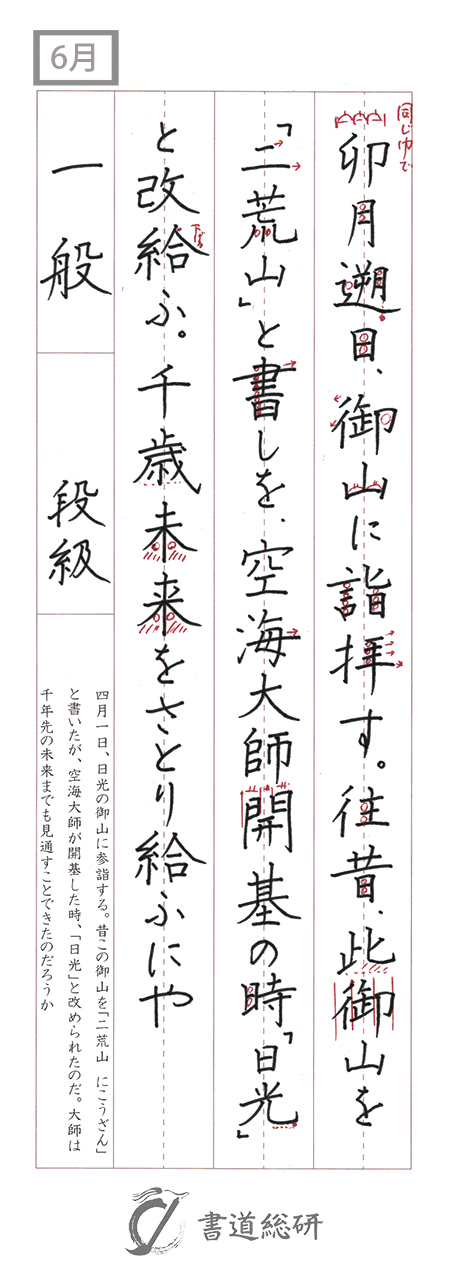 6月
同じ巾で
卯月遡日、御山に詣拝す。往昔、此御山を
「二荒山」と書しを、空海大師開基の時「日光」
と改給ふ。千歳未来をさとり給ふにや
一般
段級
四月一日、日光の御山に参詣する。昔この御山を「二荒山　にこうざん」
と書いたが、空海大師が開基した時、「日光」と改められたのだ。大師は
千年先の未来までも見通すことできたのだろうか
書道総研